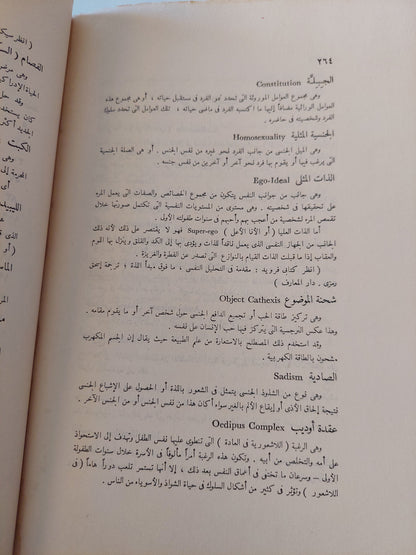 ٢٦٤
الجبلة Constitution
وهى مجموع العوامل الموروثة التى تحدد نمو الفرد فى مستقبل حياته ، أو هى مجموع هذه
العوامل الوراثية مضافاً إليها ما اكتسبه الفرد فى ماضى حياته تلك التى تحدد سلوك
الفرد وشخصيته فى حاضره .
الجنسية المثلية Homosexuality
وهى الميل الجنسى من جانب الفرد نحو غيره من نفس الجنس ، أو هى الصلة الجنسية
التى يرغب فيها أو يقوم بها فرد نحو آخر أو آخرين من نفس جنسه .
الذات المثلى Ego-Ideal
وهى جانب من جوانب النفس يتكون من مجموع الخصائص والصفات التى يعمل المرء
على تحقيقها فى شخصيته . وهى مستوى من المستويات النفسية التى تكتمل صورتها خلال
تقمص المرء لشخصية من أعجب بهم وأحبهم فى سنوات طفولته الأولى .
أما الذات العليا ( أو الأنا الأعلى ) Super-ego فهو لا يقتصر على ذلك لأنه ذلك
الجانب من الجهاز النفسى الذى يعمل ناقداً للذات ويؤدى بها إلى الكبد والقلق وينزل بها اللوم
والعقاب إذا ما قبلت الذات القيام بالنوازع التى تصدر عن الفطرة والغريزة .
( انظر كتاب فرويد : مقدمة فى التحليل النفسى ، ما فوق مبدأ اللذة ؛ ترجمة إسحق
رمزى . دار المعارف )
شحنة الموضوع Object Cathexis
وهى تركيز طاقة الحب أو تجميع الدافع الجنسى حول شخص آخر أو ما يقوم مقامه .
وهذا عكس النرجسية التى يتركز فيها حب الإنسان على نفسه .
وقد استخدم ذلك المصطلح بالاستعارة من علم الطبيعة حيث يقال إن الجسم المكهرب
مشحون بالطاقة الكهربية .
الصادية Sadism
وهى نوع من الشذوذ الجنسى يتمثل فى الشعور باللذة أو الحصول على الإشباع الجنسى
نتيجة إلحاق الأذى أو إيقاع الألم بالغير سواء أكان هذا من نفس الجنس أو من الجنس الآخر .
عقدة أوديب Oedipus Complex
وهى الرغبة ( اللاشعورية فى العادة ) التى تنطوى عليها نفس الطفل وتهدف إلى الاستحواذ
على أمه والتخلص من أبيه . وتكون هذه الرغبة أمراً مألوفاً فى الأسرة خلال سنوات الطفولة
الأولى – وسرعان ما تختفى فى أعماق النفس بعد ذلك ، إلا أنها تستمر تلعب دوراً هاماً ( فى
اللاشعور ) وتؤثر فى كثير من أشكال السلوك فى حياة الشواذ والأسوياء من الناس .